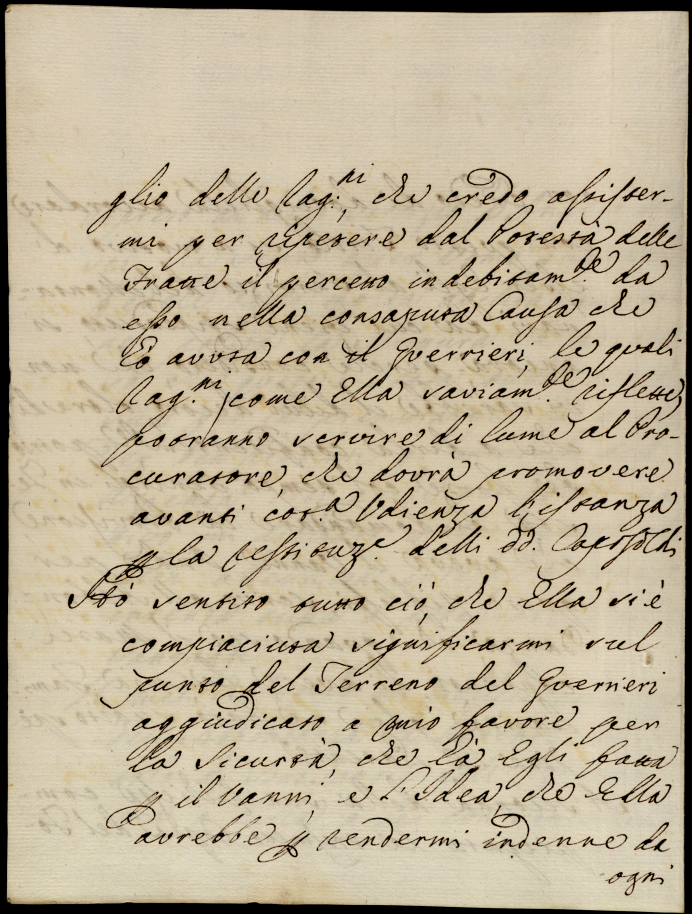 glio delle Rag:ni che credo assister-
mi per ripetere dal Potestà delle
Fratte il percetto indebitam:te da
esso nella consaputa Causa che
hò avuta con il Guerrieri, le quali
Rag:ni, come Ella saviam:te riflette,
potranno servire di lume al Pro-
curatore, che dovrà promovere
avanti cot:a Udienza l'istanza
p la restituz:e delli dd. Capisoldi
Hò sentito tutto ciò, che Ella si è
compiaciuta significarmi sul
punto del Terreno del Guerrieri
aggiudicato a mio favore per
la Sicurtà, che hà Egli fatta
p il Vanni, e l'Idea, che Ella
avrebbe p rendermi indenne da
ogni